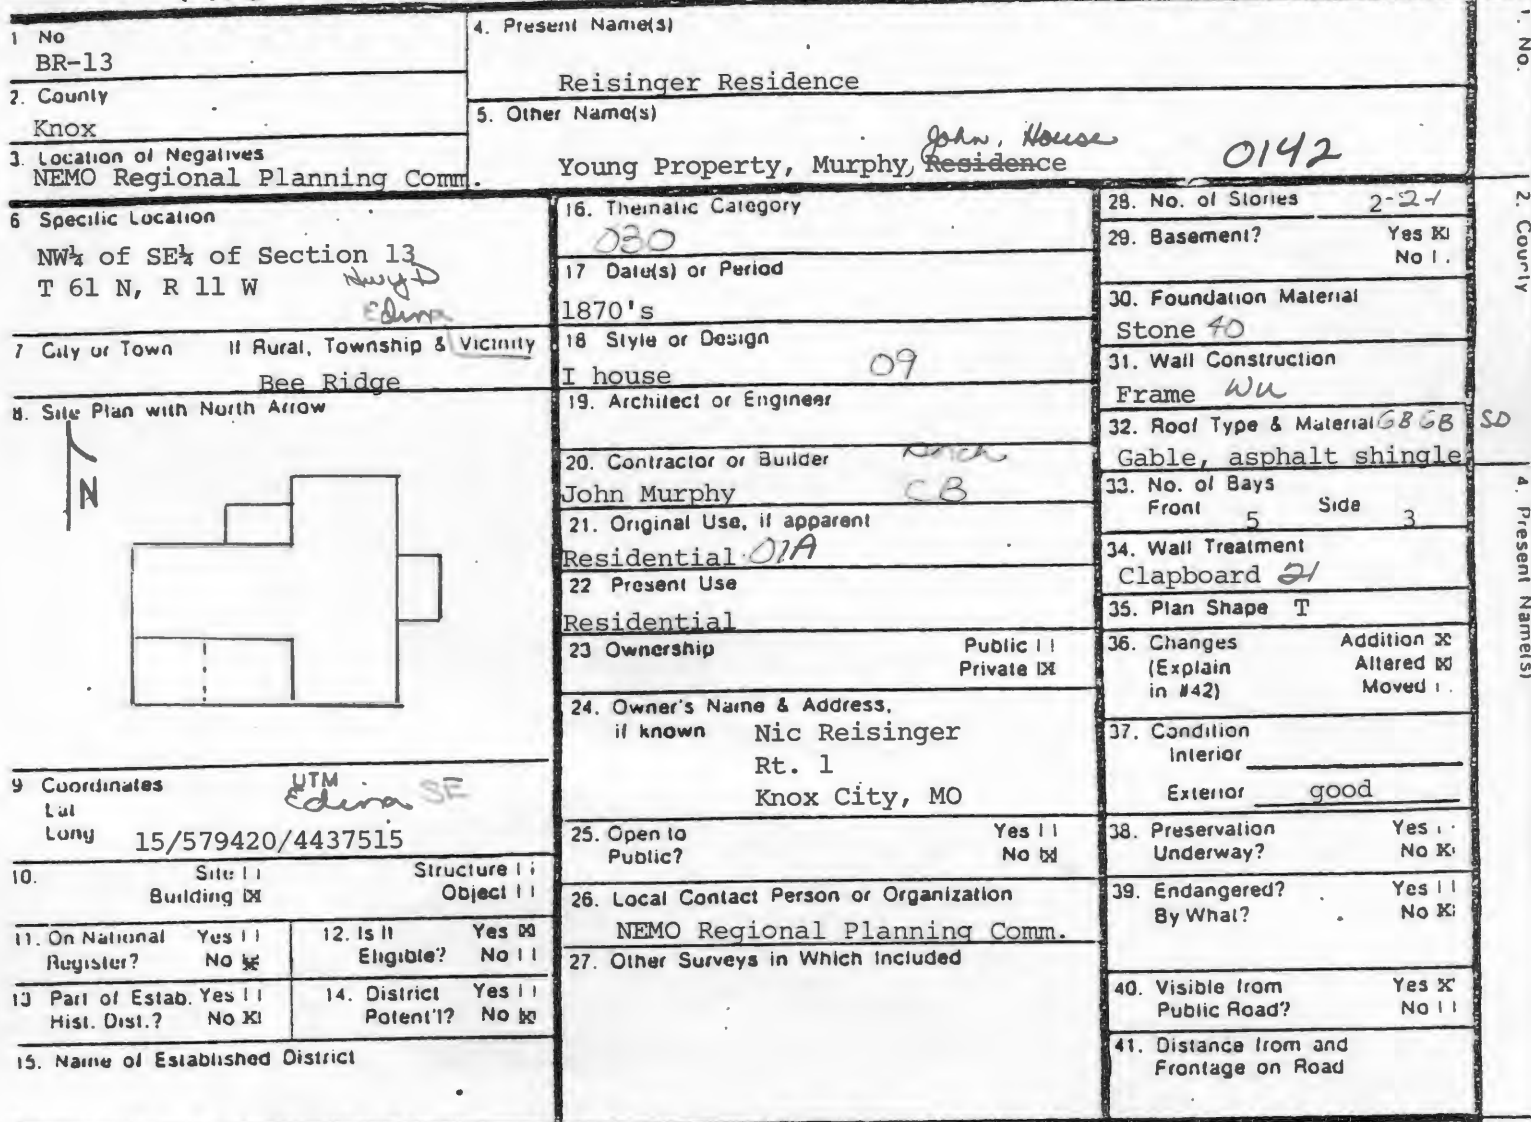 1 No
BR-13
2. County
Knox
3. Location of Negatives
NEMO Regional Planning Comm.
4. Present Name(s)
Reisinger Residence
5. Other Name(s)
John, House
Young Property, Murphy, Residence
0142
6 Specific Location
NW¼ of SE¼ of Section 13
T 61 N, R 11 W
Hwy D
Edina
7 City or Town If Rural, Township & Vicinity
Bee Ridge
8. Site Plan with North Arrow
N
9 Coordinates UTM
Lat
Edina SE
Long 15/579420/4437515
10. Site Structure
Building X Object
11. On National Register? Yes
No X
12. Is It Eligible? Yes X
No
13 Part of Estab. Hist. Dist.? Yes
No X
14. District Potent'l? Yes
No X
15. Name of Established District
16. Thematic Category
030
17 Date(s) or Period
1870's
18 Style or Design
I house 09
19. Architect or Engineer
20. Contractor or Builder
John Murphy CB
21. Original Use, if apparent
Residential 01A
22 Present Use
Residential
23 Ownership Public
Private X
24. Owner's Name & Address,
if known Nic Reisinger
Rt. 1
Knox City, MO
25. Open to Yes
Public? No X
26. Local Contact Person or Organization
NEMO Regional Planning Comm.
27. Other Surveys in Which Included
28. No. of Stories 2
29. Basement? Yes X
No
30. Foundation Material
Stone 40
31. Wall Construction
Frame
32. Roof Type & Material GB GB SD
Gable, asphalt shingle
33. No. of Bays
Front 5 Side 3
34. Wall Treatment
Clapboard 21
35. Plan Shape T
36. Changes Addition X
(Explain Altered X
in #42) Moved
37. Condition
Interior
Exterior good
38. Preservation Yes
Underway? No X
39. Endangered? Yes
By What? No X
40. Visible from Yes X
Public Road? No
41. Distance from and
Frontage on Road
1. No.
2. County
4. Present Name(s)